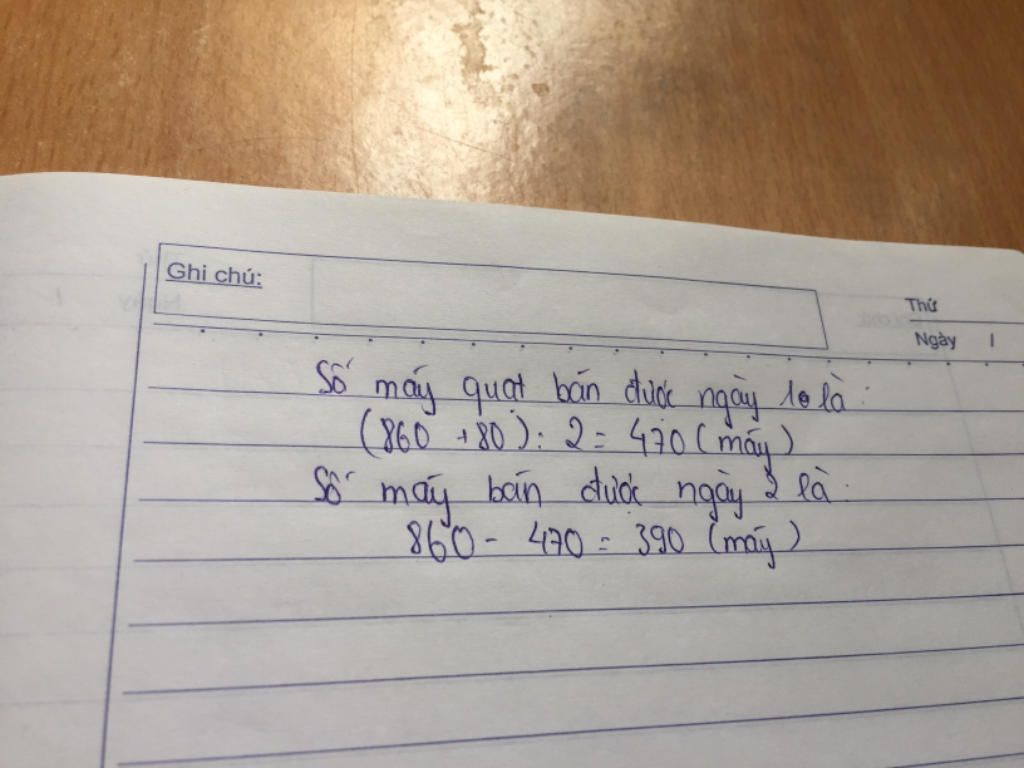 Ghi chú:
Thứ
Ngày /
Số máy quạt bán được ngày 1 là:
(860 + 80) : 2 = 470 (máy)
Số máy bán được ngày 2 là:
860 - 470 = 390 (máy)